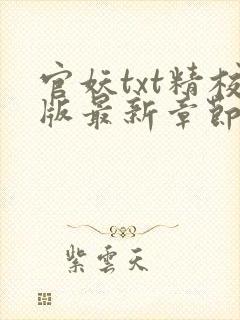 官妖txt精校
版最新章節
紫雲天